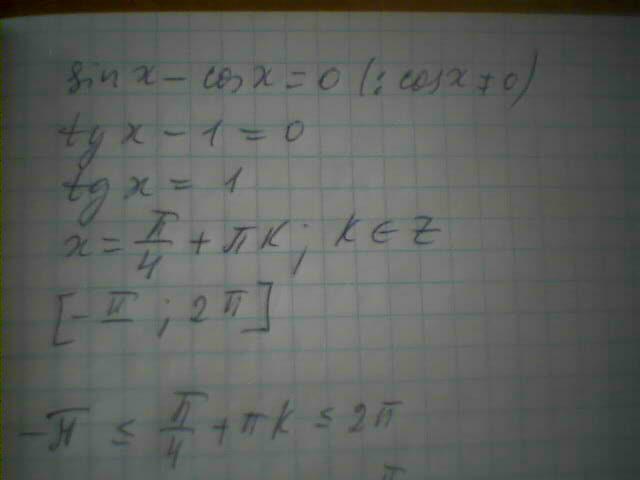 sin x − cos x = 0 (: cos x ≠ 0)
tg x − 1 = 0
tg x = 1
x = π/4 + πk; k ∈ Z
[−π ; 2π]
−π ≤ π/4 + πk ≤ 2π
π